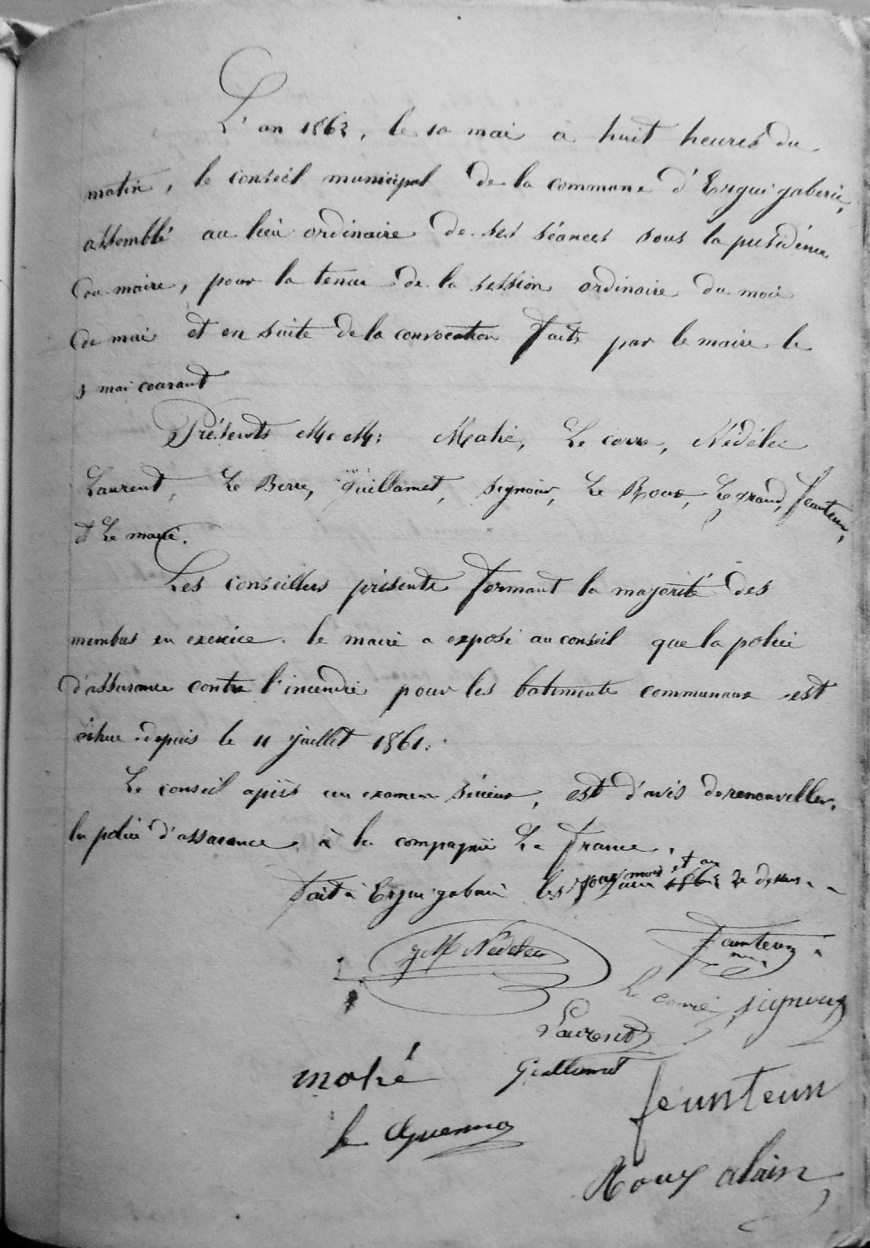 L'an 1863, le 10 mai a huit heures du
matin, le conseil municipal de la commune d'Ergué gaberic,
assemblé au lieu ordinaire de ses séances sous la présidence
du maire, pour la tenue de la session ordinaire du mois
de mai et en suite de la convocation faite par le maire le
5 mai courant
Présents MM: Mahé, Le corre, Nédélec
Laurent, Le Berre, Guillamet, Signour, Le Roux, Le grand, feunteun,
et Le maire.
Les conseillers présents formant la majorité des
membres en exercice. le maire a exposé au conseil que la police
d'assurance contre l'incendie pour les batiments communaux est
échue depuis le 11 juillet 1861.
Le conseil après un examen sérieux, est d'avis de renouveller
la police d'assurance à la compagnie La france.
fait à Ergué gaberic les jour, mois et an que dessus
JM Nédélec
feunteun
Le corre
signour
Laurent
Guillamet
mahé
feunteun
Le Guennou
Roux alain